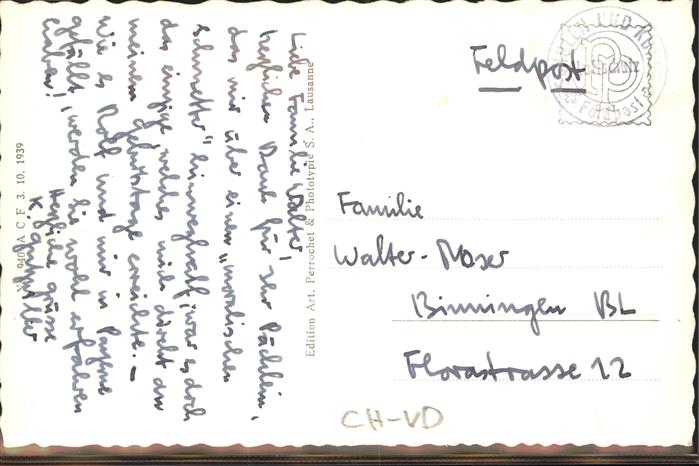 Liebe Familie Walter,
herzlichen Dank für Ihr Päcklein,
das mir über einen "moralischen
Schmetter" hinweghalf, war es doch
das einzige, welches mich direkt an
meinem Geburtstage erreichte. —
Wie es Rolf und mir in Payerne
gefällt, werden Sie wohl erfahren
haben!
Herzliche Grüsse
K.
9401 A C F 3. 10. 1939
Edition Art. Perrochet & Phototypie S. A., Lausanne
Feldpost
Feldpost
Familie
Walter-Moser
Binningen BL
Florastrasse 12
CH-VD